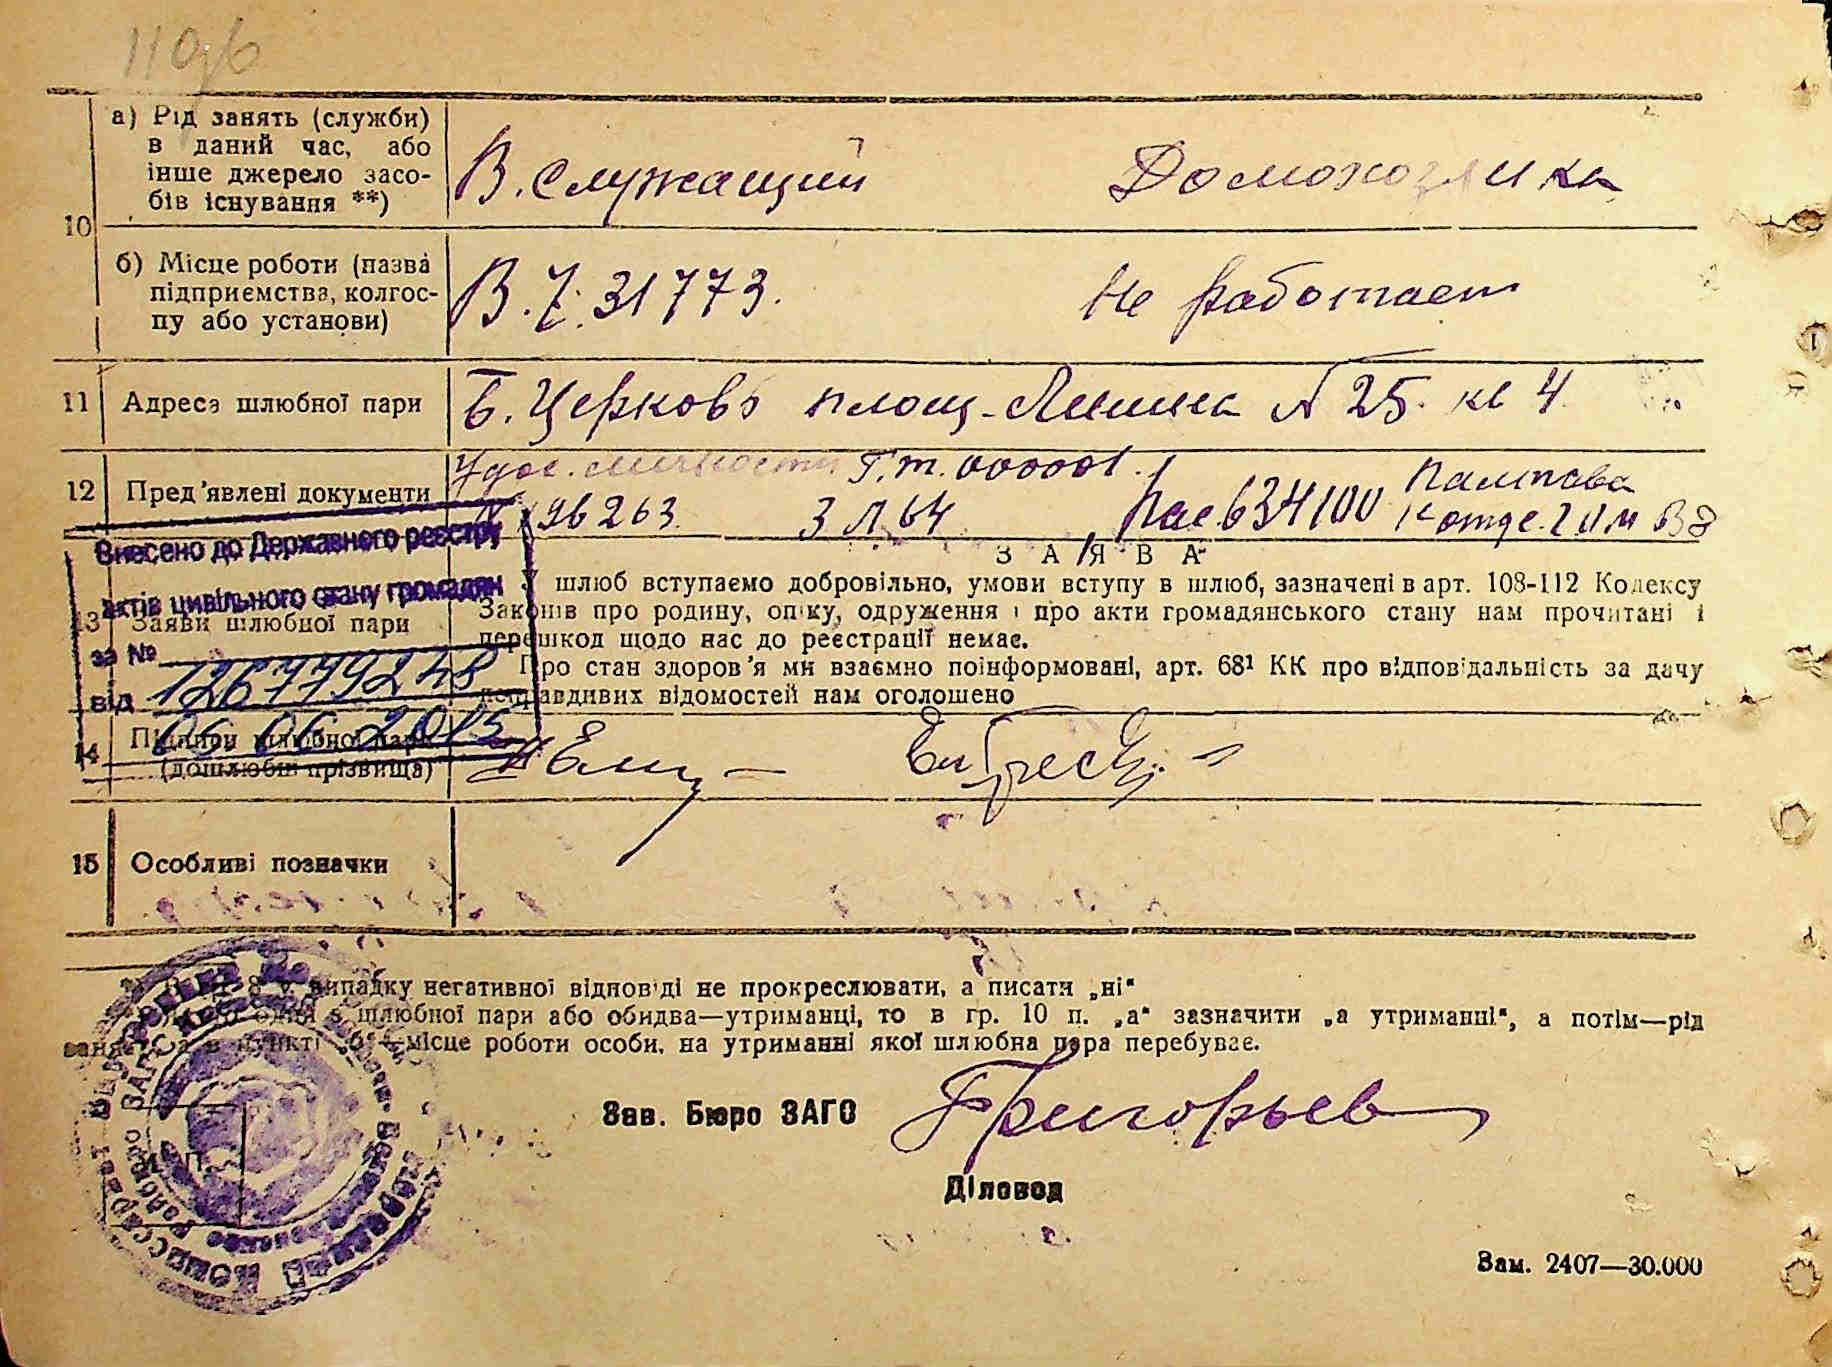 110
а) Рід занять (служби)
в даний час, або
інше джерело засо-
бів існування **)
В. Служащий
Домохозяйка
10
б) Місце роботи (назва
підприємства, колгос-
пу або установи)
В. Ч. 31773.
Не работает
11
Адреса шлюбної пари
Б. Церковь площ. Ленина № 25. кв 4
12
Пред'явлені документи
Удос. личности Г.т. 000001.
96263. 3 Л 64
Пас 634100
13
Заяви шлюбної пари
ЗАЯВА
У шлюб вступаємо добровільно, умови вступу в шлюб, зазначені в арт. 108-112 Кодексу
Законів про родину, опіку, одруження і про акти громадянського стану нам прочитані і
перешкод щодо нас до реєстрації немає.
Про стан здоров'я ми взаємно поінформовані, арт. 68¹ КК про відповідальність за дачу
неправдивих відомостей нам оголошено
Внесено до Державного реєстру
актів цивільного стану громадян
за №
126779248
від
05 06 2015
14
Підписи шлюбної пари
(дошлюбні прізвища)
15
Особливі позначки
випадку негативної відповіді не прокреслювати, а писати „ні“
шлюбної пари або обидва—утриманці, то в гр. 10 п. „а“ зазначити „а утриманні“, а потім—рід
місце роботи особи, на утриманні якої шлюбна пара перебуває.
Зав. Бюро ЗАГС
Григорьев
Діловод
Зам. 2407—30.000